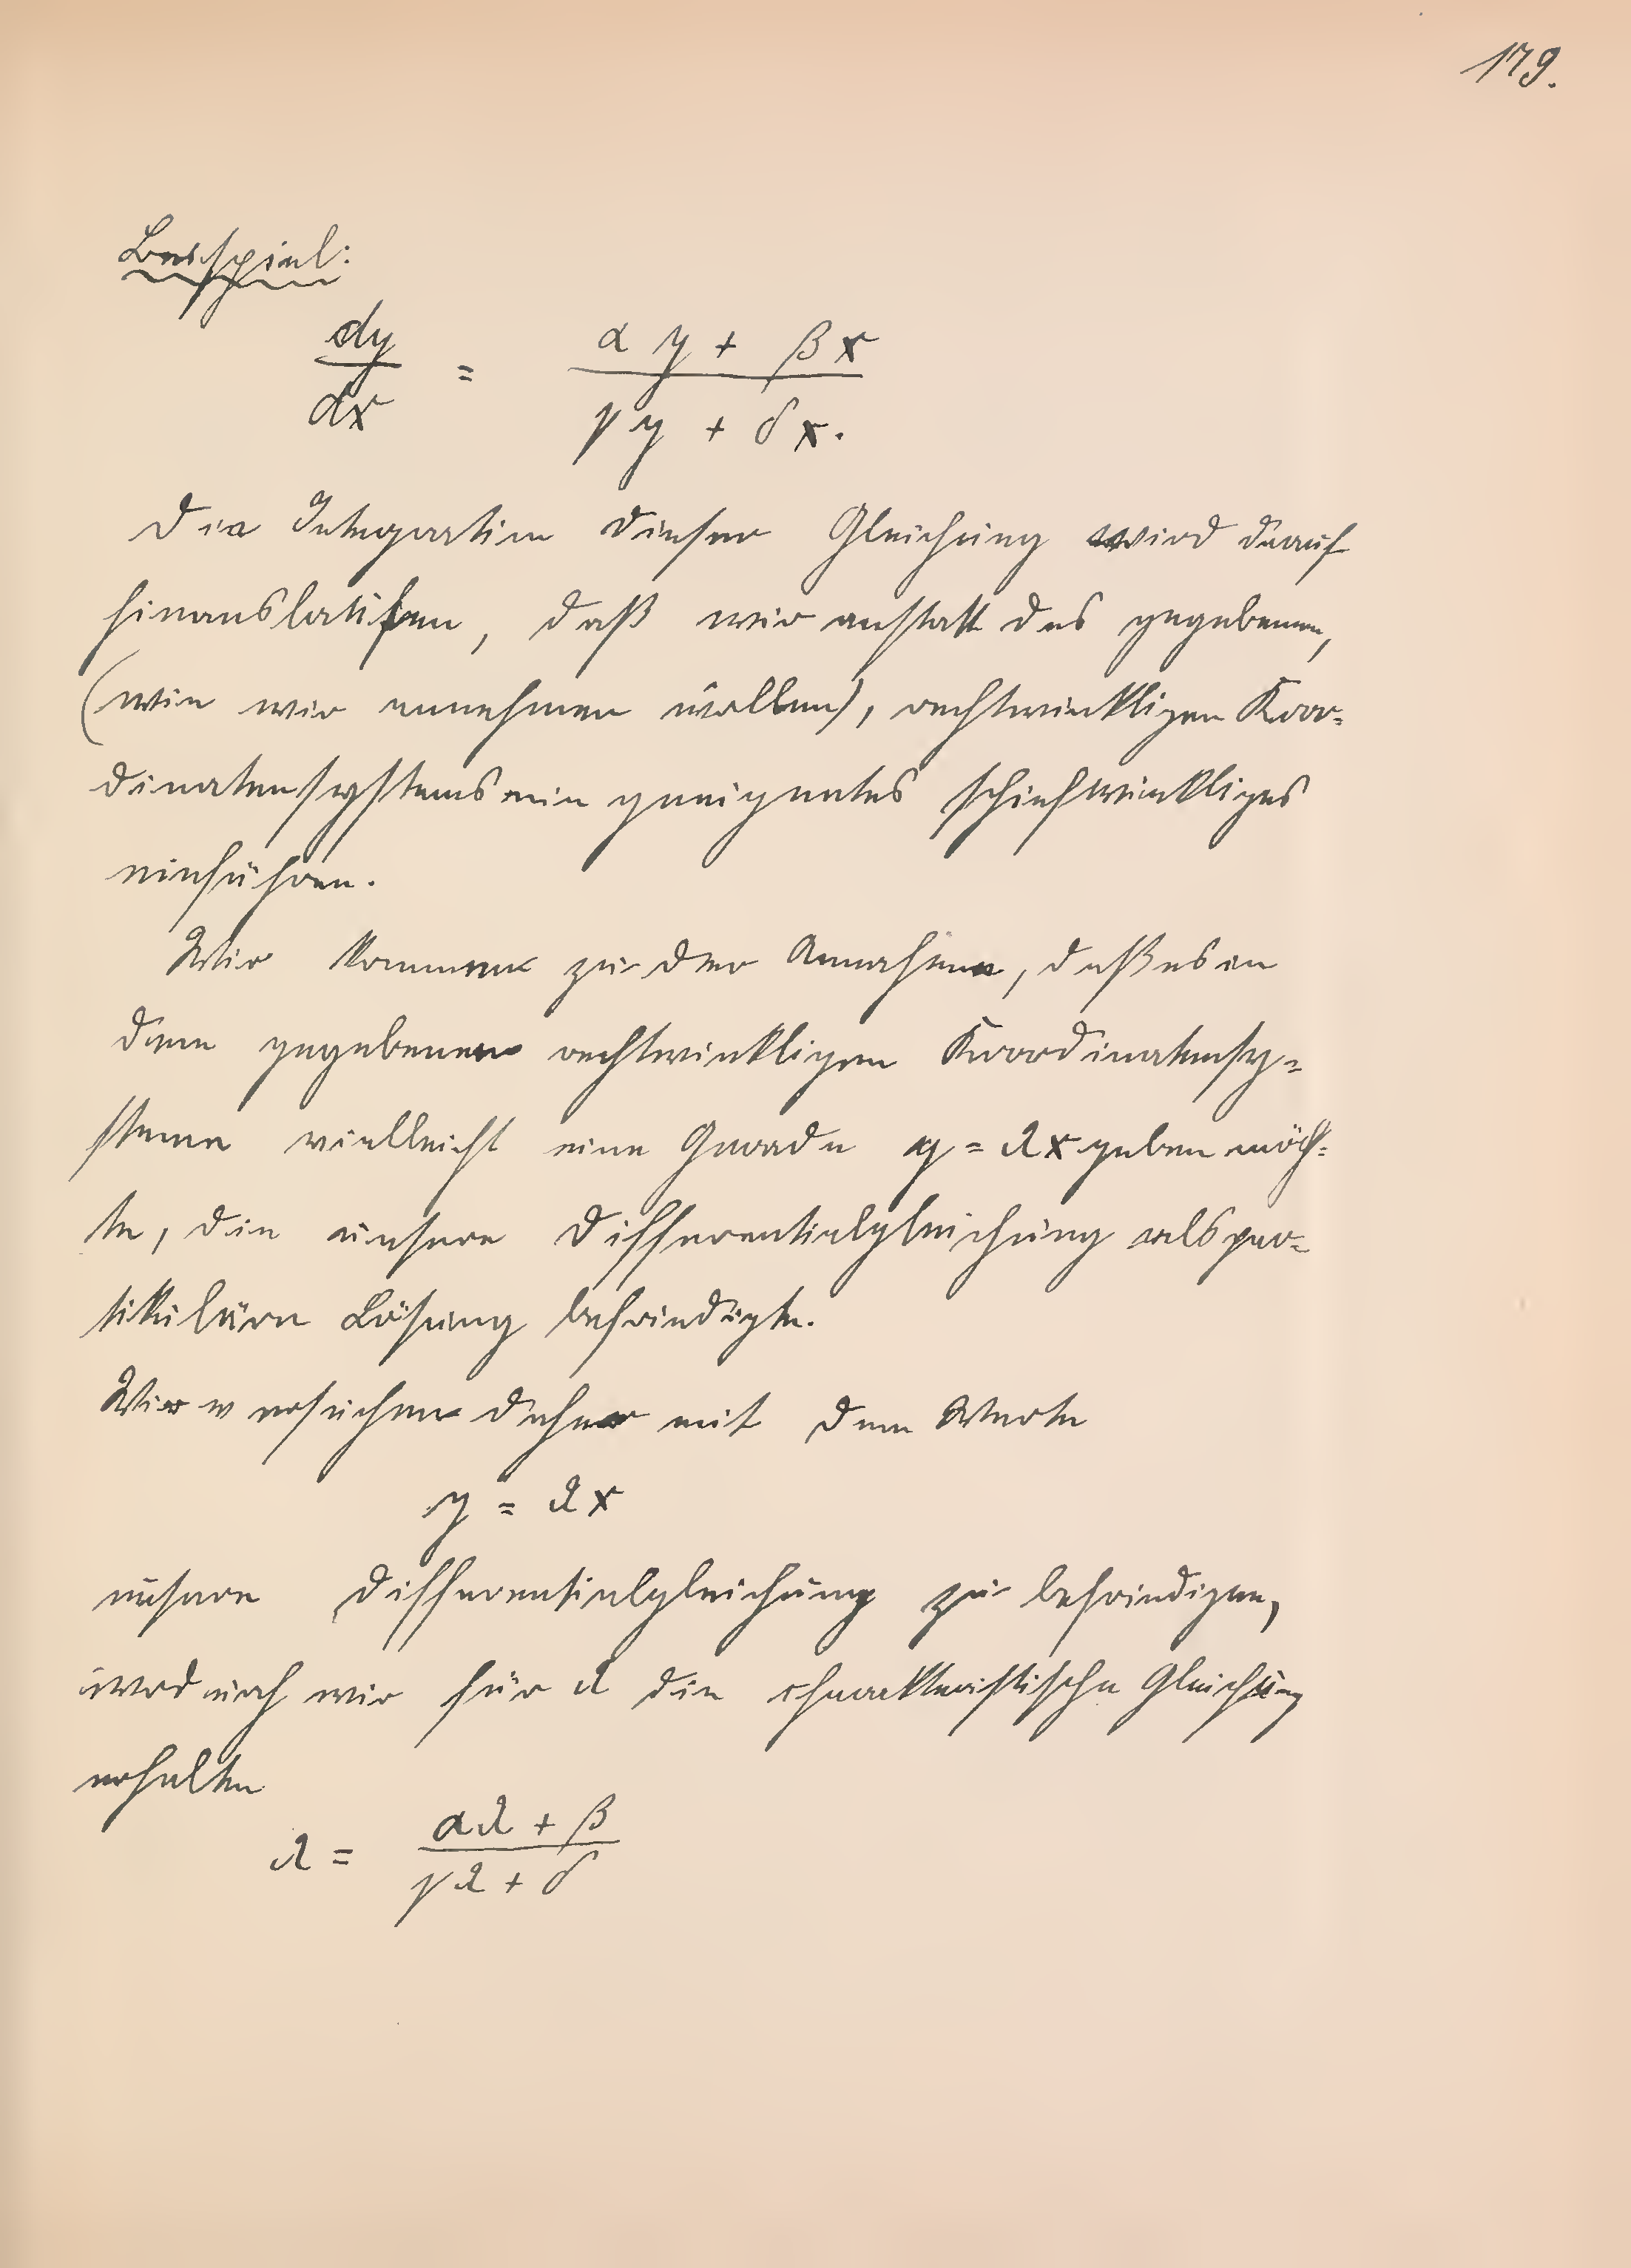 179.
Beispiel:
dy/dx = (α y + β x)/(γ y + δ x.
Die Integration dieser Gleichung wird darauf
hinauslaufen, daß wir anstatt des gegebenen,
(wie wir annehmen wollen), rechtwinkligen Koor=
dinatensystems ein geeignetes schiefwinkliges
einführen.
Wir kommen zu der Annahme, daß es in
dem gegebenen rechtwinkligen Koordinatensy=
steme vielleicht eine Gerade y = λx geben möch=
te, die unsere Differentialgleichung als par=
tikuläre Lösung befriedigte.
Wir versuchen daher mit dem Werte
y = λx
unsere Differentialgleichung zu befriedigen,
wodurch wir für λ die charakteristische Gleichung
erhalten
λ = (αλ + β)/(γλ + δ)